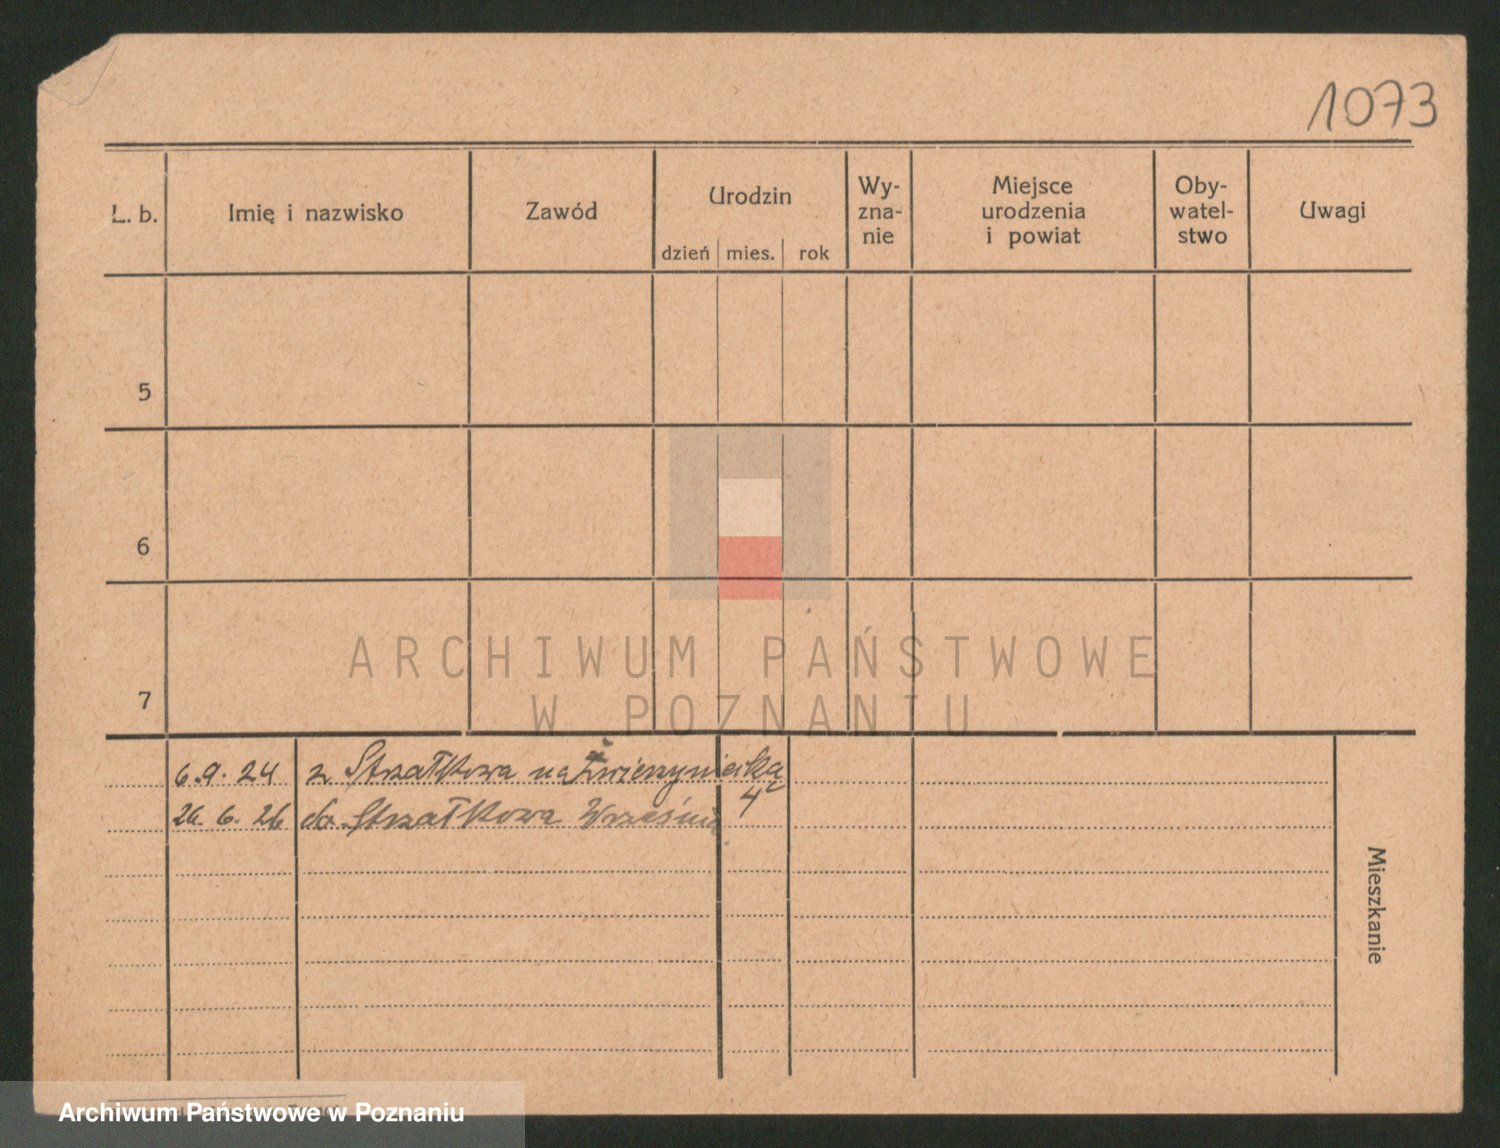 1073
L. b.
Imię i nazwisko
Zawód
Urodzin
dzień mies. rok
Wy-
zna-
nie
Miejsce
urodzenia
i powiat
Oby-
watel-
stwo
Uwagi
5
6
7
ARCHIWUM PAŃSTWOWE
W POZNANIU
6.9.24 z Strzałkowa na Zwierzyniecka
4
26.6.26 do Strzałkowa Września
Mieszkanie
Archiwum Państwowe w Poznaniu